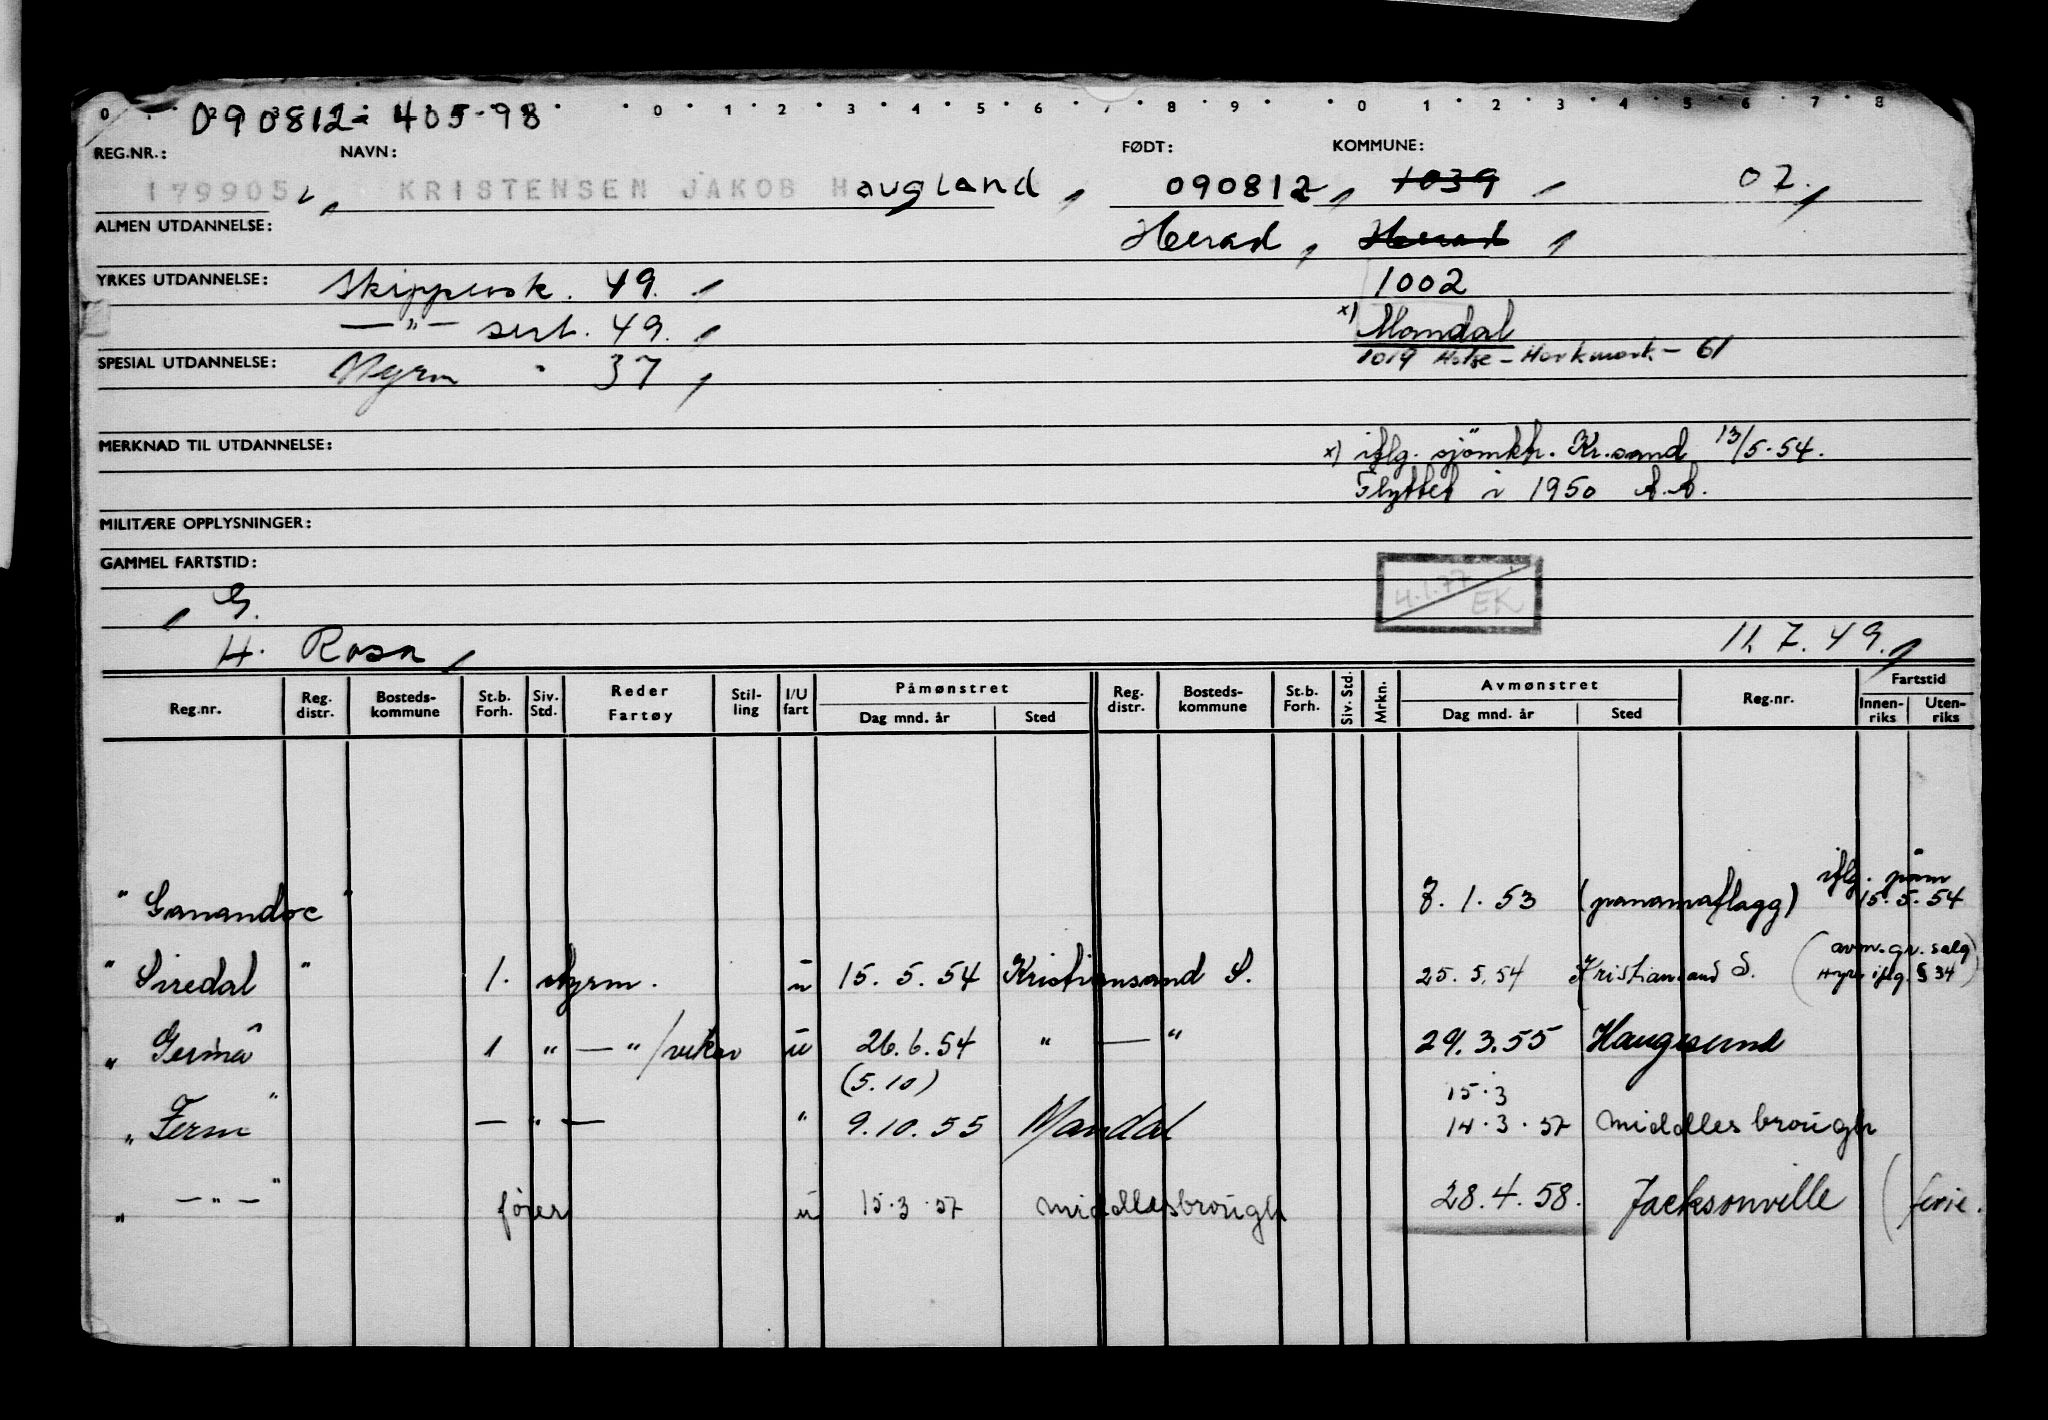 0 . 090812 - 405-98 . . 0 . 1 . 2 . 3 . 4 . 5 . 6 . 7 . 8 . 9 . . 0 . 1 . 2 . 3 . 4 . 5 . 6 . 7 . 8
REG.NR.: NAVN: FØDT: KOMMUNE:
179905 , KRISTENSEN JAKOB Haugland , 090812 , 1039 , 07.,
ALMEN UTDANNELSE: Herad , Herad ,
YRKES UTDANNELSE: Skippersk. 49. , 1002
— " — sert. 49. , x) Mandal
1019 Halse - Harkmark - 61
SPESIAL UTDANNELSE: Styrm " 37 ,
MERKNAD TIL UTDANNELSE: x) iflg. sjömktr. Kr.sand 13/5-54.
Flyttet i 1950 A.A.
MILITÆRE OPPLYSNINGER:
GAMMEL FARTSTID:
4.1.77 EK
, G.
H. Rosa , 11.7.49.,
Reg.nr. Reg. distr. Bosteds-kommune St.b. Forh. Siv. Std. Reder Fartøy Stil-ling I/U fart Påmønstret Dag mnd. år Sted Reg. distr. Bosteds-kommune St.b. Forh. Siv. Std. Mrkn. Avmønstret Dag mnd. år Sted Reg.nr. Fartstid Innen-riks Uten-riks
" " 7. 1. 53 (panamaflagg) iflg. påm 15.5.54
" Siredal " 1. styrm. ū 15. 5. 54 Kristiansand S. 25. 5. 54 Kristiansand S. (avm. gr. salg Hyre iflg. § 34)
" 1 " — " /vikar ū 26. 6. 54 " — " 29. 3. 55 Haugesund
(5.10) 15.3
" Ferm " — " — " 9. 10. 55 Mandal 14. 3. 57 Middlesbrough
" — " — " fører ū 15. 3. 57 Middlesbrough 28. 4. 58. Jacksonville (ferie.